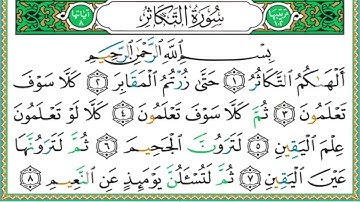 سُورَةُ التَّكَاثُرِ
بِسْمِ اللَّهِ الرَّحْمَٰنِ الرَّحِيمِ
أَلْهَاكُمُ التَّكَاثُرُ ﴿١﴾ حَتَّىٰ زُرْتُمُ الْمَقَابِرَ ﴿٢﴾ كَلَّا سَوْفَ
تَعْلَمُونَ ﴿٣﴾ ثُمَّ كَلَّا سَوْفَ تَعْلَمُونَ ﴿٤﴾ كَلَّا لَوْ تَعْلَمُونَ
عِلْمَ الْيَقِينِ ﴿٥﴾ لَتَرَوُنَّ الْجَحِيمَ ﴿٦﴾ ثُمَّ لَتَرَوُنَّهَا
عَيْنَ الْيَقِينِ ﴿٧﴾ ثُمَّ لَتُسْأَلُنَّ يَوْمَئِذٍ عَنِ النَّعِيمِ ﴿٨﴾